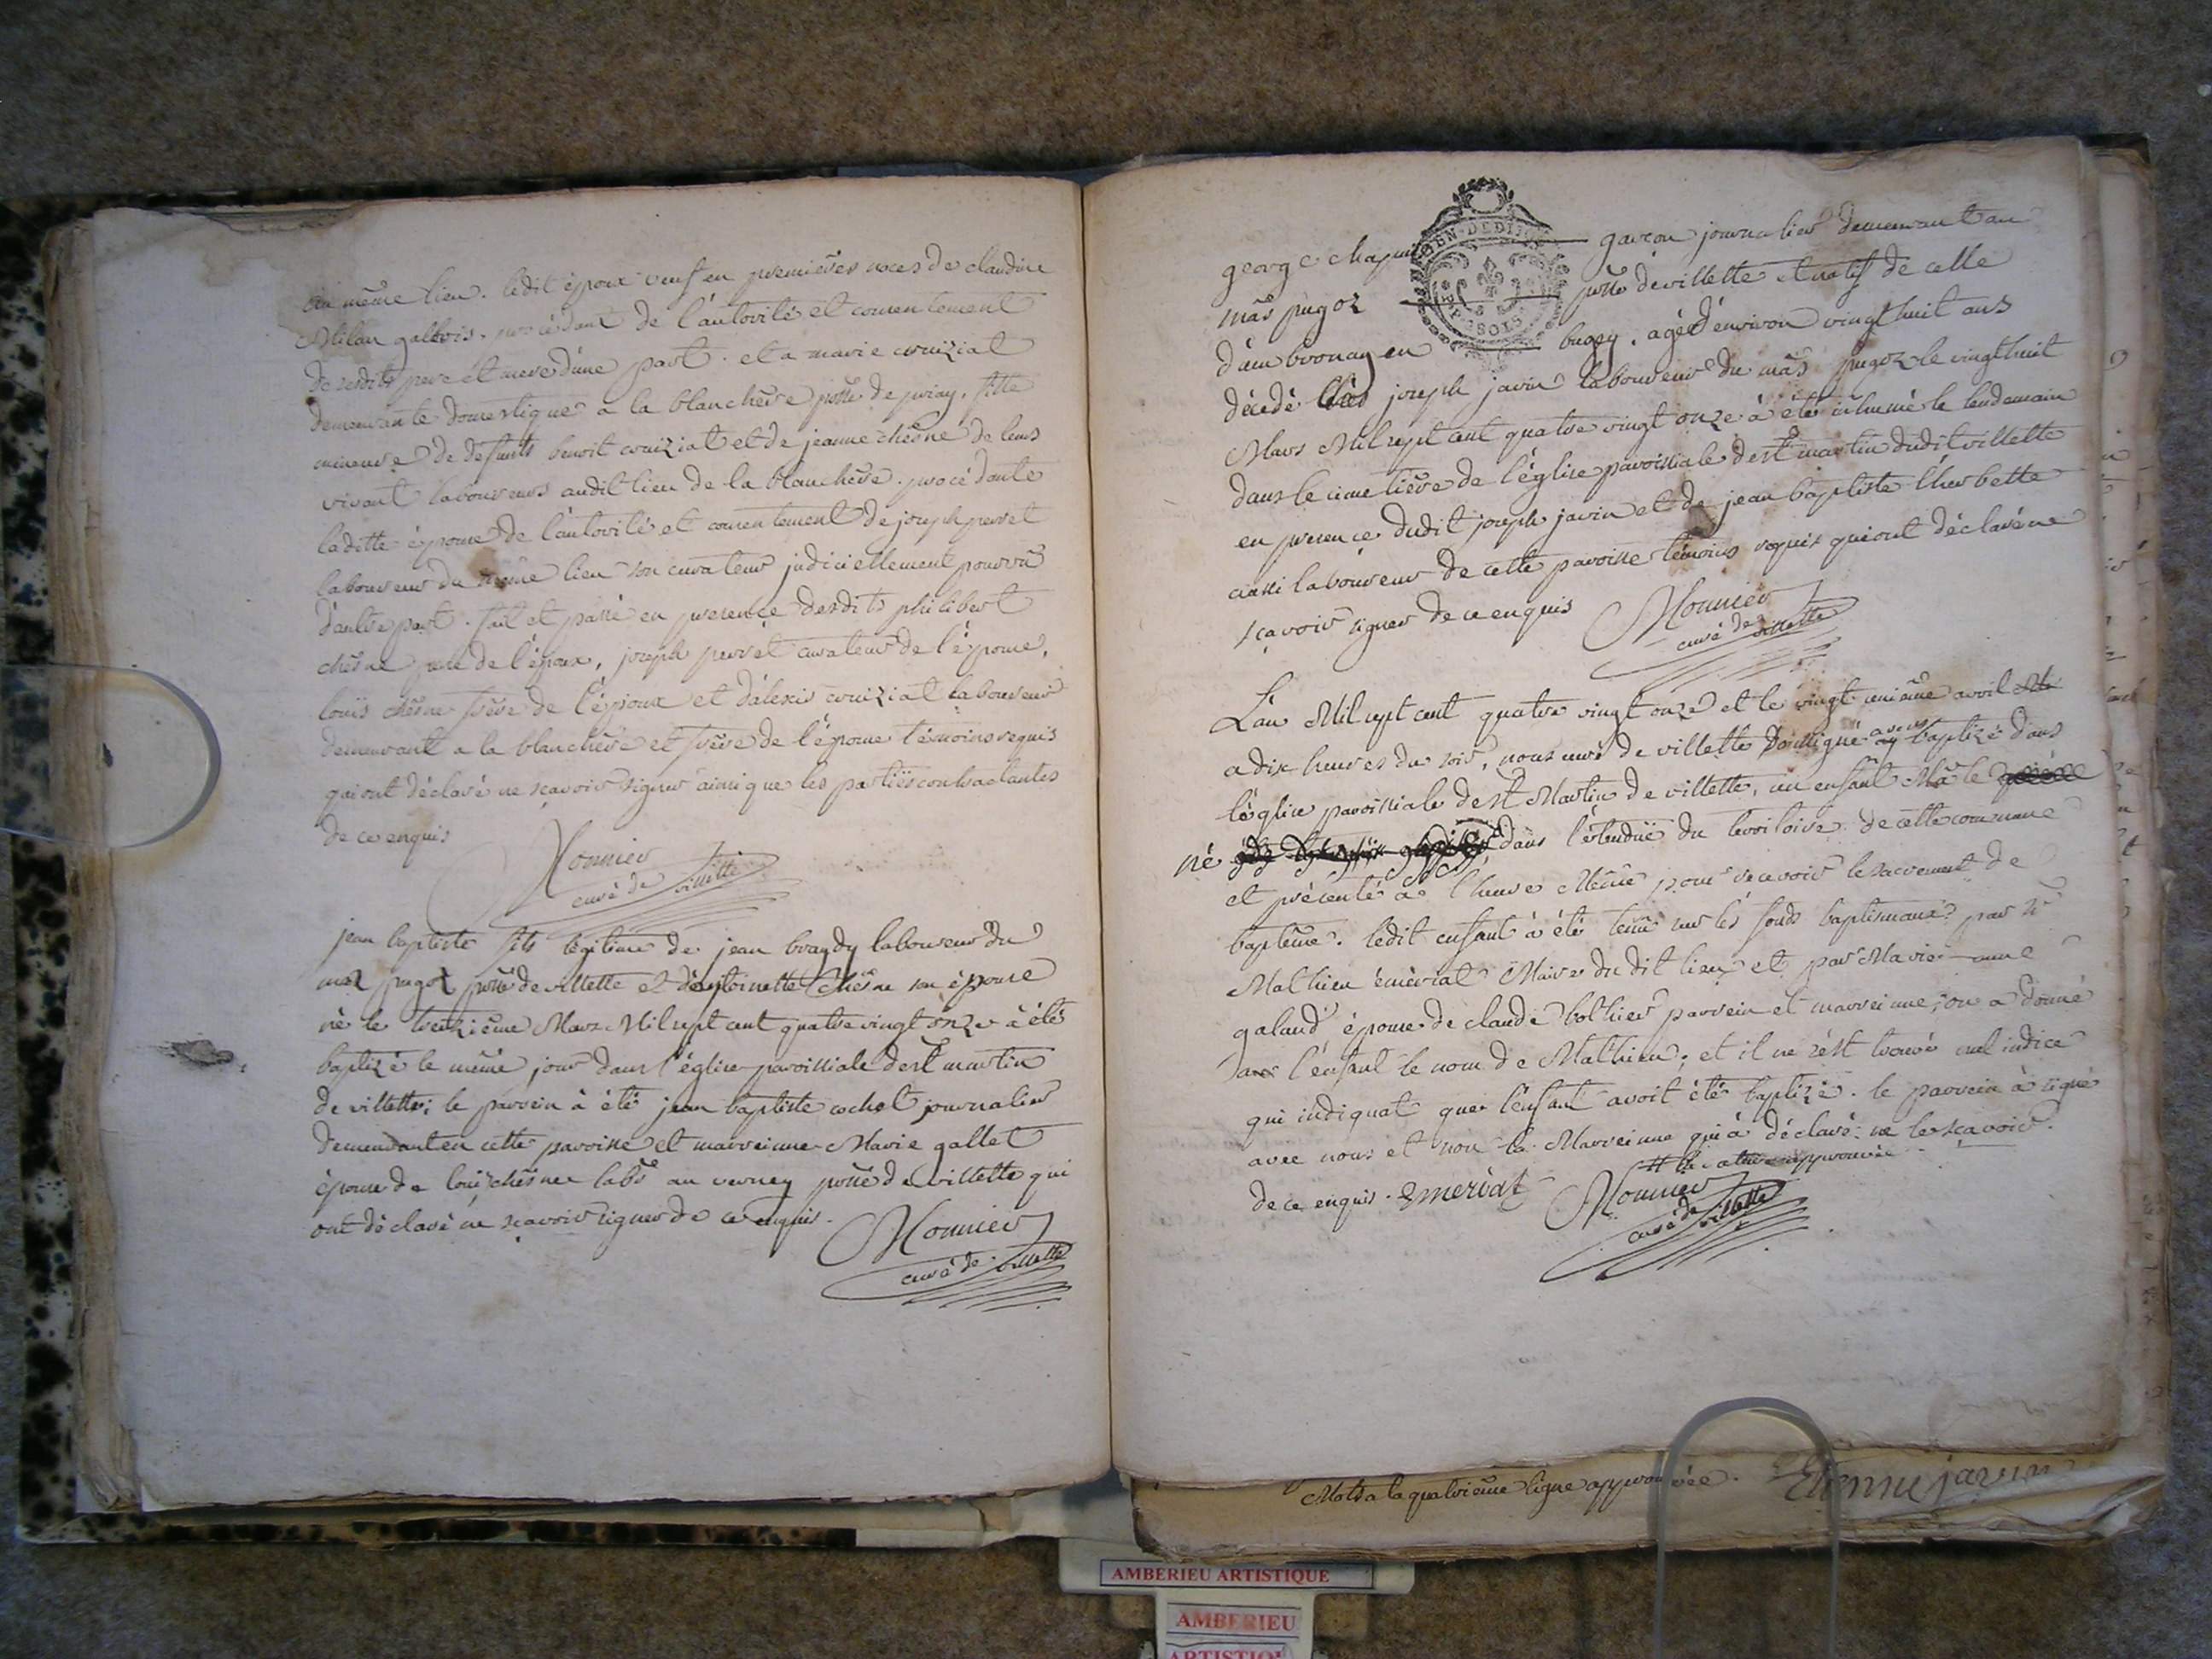 du même lieu. ledit époux veuf en premières noces de claudine
Milan gallois. procédant de l'autorité et consentement
de sesdits pere et mere d'une part. et a marie cruiziat
demeurante domestique a la blanchère psse de priay, fille
mineure de defunts benoit cruiziat et de jeanne chêne de leurs
vivant laboureurs audit lieu de la blanchère. procédante
ladite épouse de l'autorité et consentement de joseph perret
laboureur du même lieu son curateur judiciellement pourvû
d'autre part. fait et passé en presence desdits philibert
chêne pere de l'époux, joseph perret curateur de l'épouse,
louis chêne frère de l'époux et d'alexis cruiziat laboureur
demeurant a la blanchère et frère de l'épouse témoins requis
qui ont déclaré ne sçavoir signer ainsi que les partiës contractantes
de ce enquis
Monnier
curé de villette
jean baptiste fils légitime de jean bragdy laboureur du
mas pugoz psse de villette et d'entoinette Chêne son épouse
né le treizième Mars Mil sept cent quatre vingt onze à été
baptizé le même jour dans l'église paroissiale de st martin
de villette; le parrein à été jean baptiste cochet journalier
demeurant en cette paroisse et marreinne Marie gallet
épouse de louis chêne labr au verney psse de villette qui
ont déclaré ne sçavoir signer de ce enquis.
Monnier
curé de villette
george chapuis garçon journalier demeurant au
mâs pugoz psse de villette et natif de celle
d'ambronay en bugey. agé d'environ vingt huit ans
décédé chés joseph javin laboureur du mâs pugoz le vingt huit
Mars Mil sept cent quatre vingt onze à été inhumé le lendemain
dans le cimetière de l'église paroissiale de st martin dudit villette
en presence dudit joseph javin et de jean baptiste lherbette
aussi laboureur de cette paroisse témoins requis qui ont déclaré ne
sçavoir signer de ce enquis
Monnier
curé de villette
L'an Mil sept cent quatre vingt onze et le vingt unième avril
a dix heures du soir, nous curé de villette soussigné avons baptizé dans
l'église paroissiale de st Martin de villette, un enfant Mâle
né dans l'étenduë du territoire de cette commune
et présenté a l'heure Même pour recevoir le sacrement de
baptême. ledit enfant à été tenû sur les fonds baptismaux par sr
Mathieu émériat Maire du dit lieu et par Marie anne
galand épouse de claude bolhier parrein et marreinne; on a donné
a l'enfant le nom de Mathieu; et il ne s'est trouvé nul indice
qui indiquat que l'enfant avoit été baptizé. le parrein à signé
avec nous et non la Marreinne qui à déclaré ne le sçavoir.
de ce enquis. Emeriat
approuvée
Monnier
curé de villette
Mots a la quatrième ligne approuvée. Etienne javin
AMBERIEU ARTISTIQUE
AMBERIEU
ARTISTIQUE